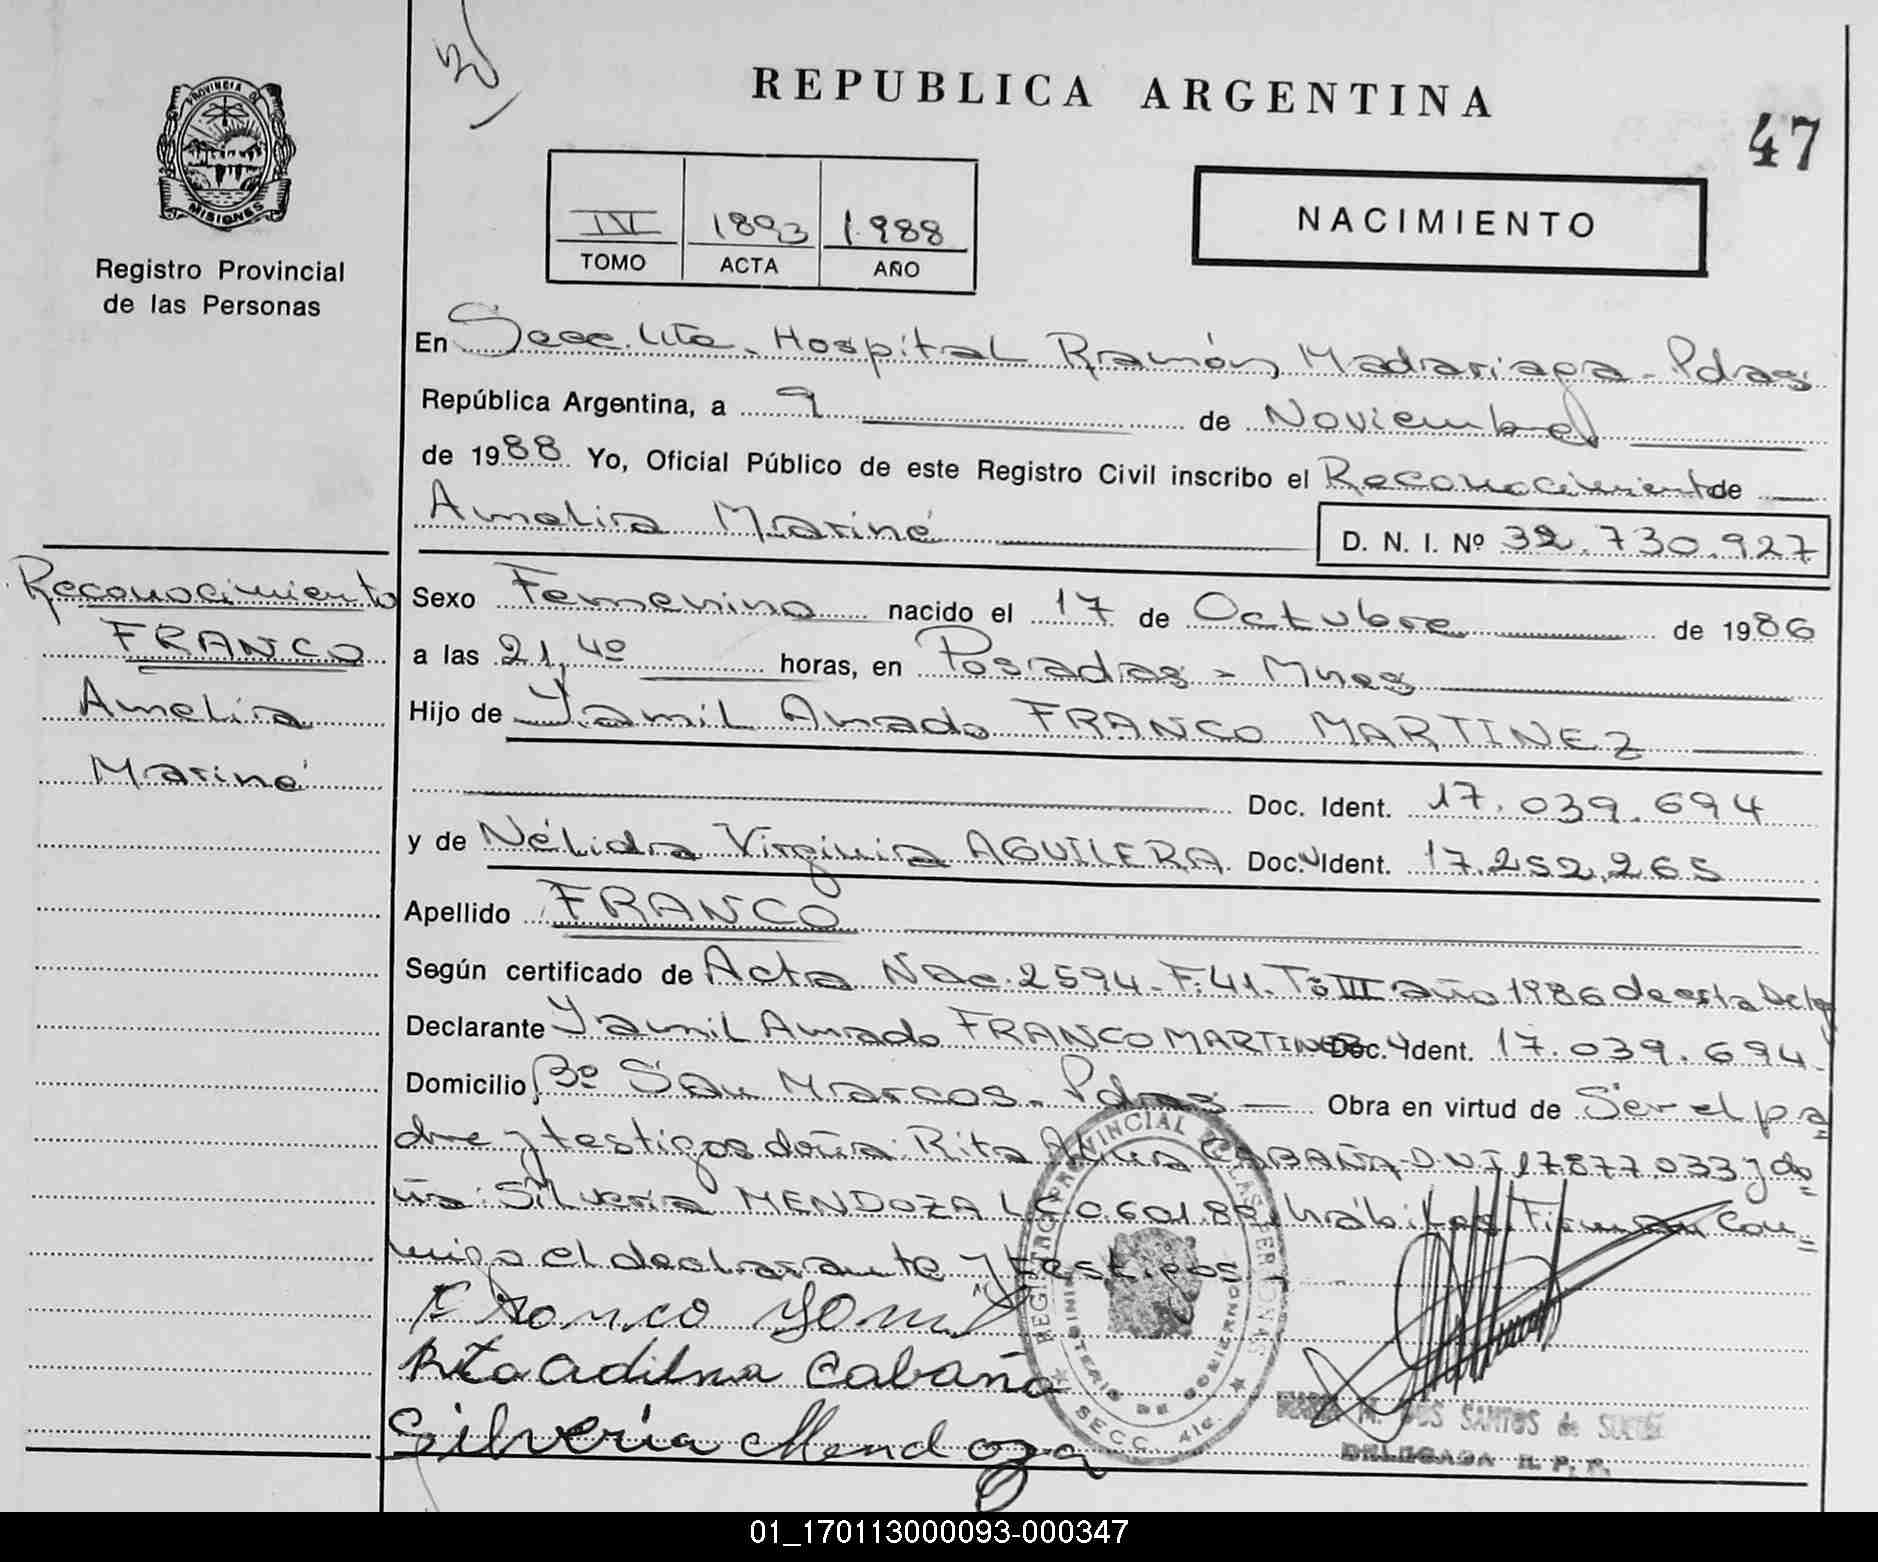 REPUBLICA ARGENTINA
47
PROVINCIA DE
MISIONES
Registro Provincial
de las Personas
IV 1893 1988
TOMO ACTA AÑO
NACIMIENTO
En Secc. 4ta. Hospital Ramón Madariaga - Pdas
República Argentina, a 9 de Noviembre
de 1988 Yo, Oficial Público de este Registro Civil inscribo el Reconocimiento de
Amelia Mariné
D. N. I. Nº 32.730.927
Reconocimiento
FRANCO
Amelia
Mariné
Sexo Femenino nacido el 17 de Octubre de 1986
a las 21,40 horas, en Posadas - Mnes
Hijo de Yamil Amado FRANCO MARTINEZ
Doc. Ident. 17.039.694
y de Nélida Virginia AGUILERA Doc. Ident. 17.252.265
Apellido FRANCO
Según certificado de Acta Nac. 2594 - F: 41 - Tº III año 1986 de esta Deleg
Declarante Yamil Amado FRANCO MARTINEZ Doc. Ident. 17.039.694
Domicilio Bº San Marcos - Pdas - Obra en virtud de Ser el pa
dre y testigos doña: Rita CABAÑA - D.N.I 17877.033 y do
ña: Silveria MENDOZA hábiles. Firman Con
migo el declarante y testigos
Franco Yamil
Rita Cabaña
Silveria Mendoza
REGISTRO PROVINCIAL DE LAS PERSONAS
MINISTERIO DE GOBIERNO
SECC. 4ta.
M. DOS SANTOS de
DELEGADA R. P. P.
01_170113000093-000347